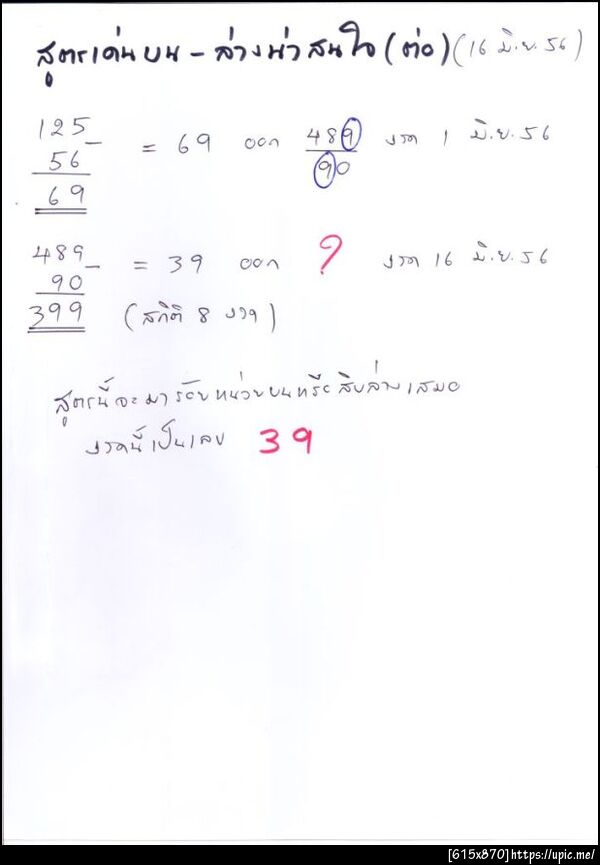 สูตรเด่นบน - ล่างน่าสนใจ (ต่อ) (16 มิ.ย. 56)
125
56 -
69
= 69 ออก 489 งวด 1 มิ.ย. 56
90
489
90 -
399
= 39 ออก ? งวด 16 มิ.ย. 56
(สถิติ 8 งวด)
สูตรนี้จะมาร้อยหน่วยบนหรือสิบล่างเสมอ
งวดนี้เป็นเลข 39
[615x870]https://upic.me/